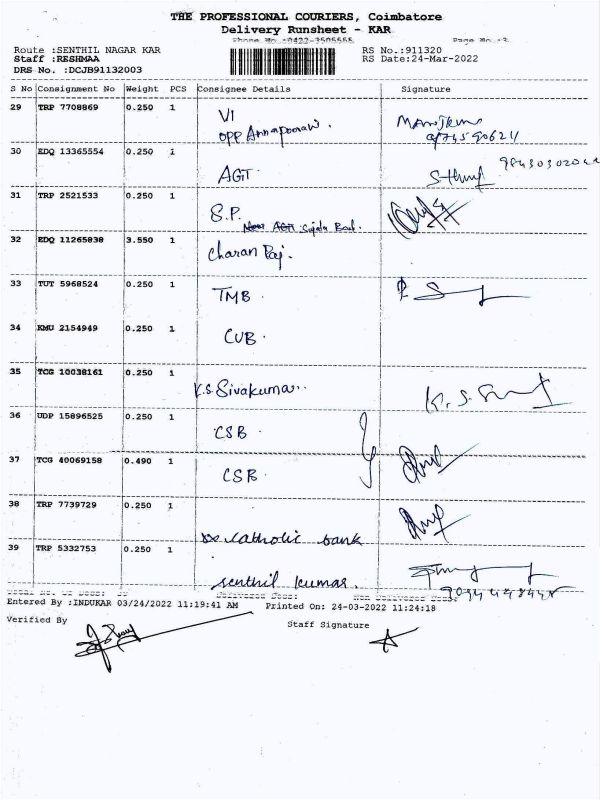 THE PROFESSIONAL COURIERS, Coimbatore
Delivery Runsheet - KAR
Phone No.:0422-3505555 Page No.:3
Route :SENTHIL NAGAR KAR RS No.:911320
Staff :RESHMAA RS Date:24-Mar-2022
DRS No. :DCJB91132003
S No Consignment No Weight PCS Consignee Details Signature
29 TRP 7708869 0.250 1 VI
opp Annapoorani.
30 EDQ 13365554 0.250 1 AGT
31 TRP 2521533 0.250 1 S.P.
32 EDQ 11265838 3.550 1 Charan Raj.
33 TUT 5968524 0.250 1 TMB.
34 KMU 2154949 0.250 1 CUB.
35 TCG 10038161 0.250 1 K.S.Sivakumar..
36 UDP 15896525 0.250 1 CSB
37 TCG 40069158 0.490 1 CSB
38 TRP 7739729 0.250 1 catholic bank
39 TRP 5332753 0.250 1 senthil kumar.
Entered By :INDUKAR 03/24/2022 11:19:41 AM Printed On: 24-03-2022 11:24:18
Verified By Staff Signature